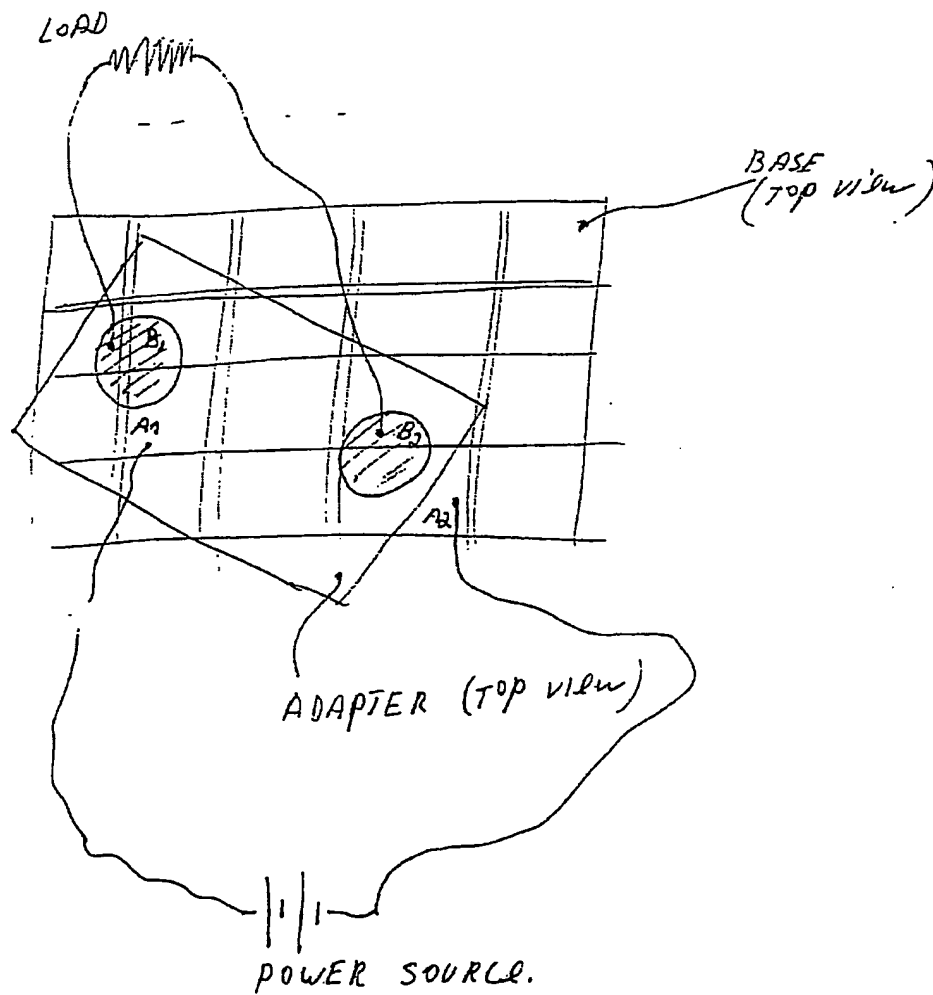 LOAD
BASE
(TOP VIEW)
B1
A1
B2
A2
ADAPTER (TOP VIEW)
POWER SOURCE.